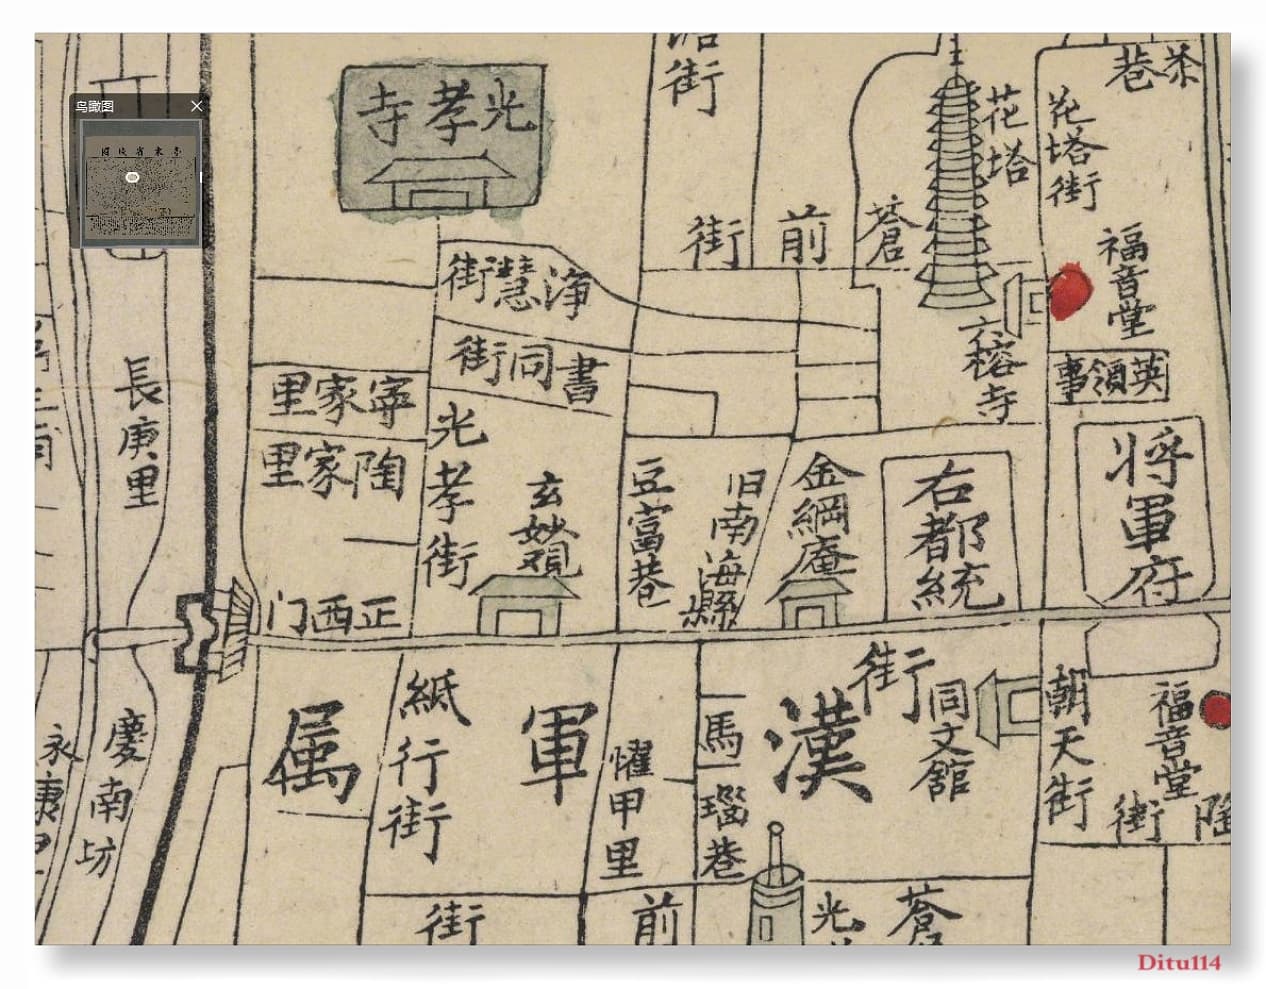 鸟瞰图
街
茶巷
光孝寺
花塔
花塔街
倉前街
福音堂
净慧街
六榕寺
英領事
書同街
寗家里
長庚里
光孝街
陶家里
玄妙觀
豆富巷
旧南海縣
金綱庵
右都統
將軍府
正西门
街
紙行街
漢軍属
同文舘
朝天街
福音堂
懼甲里
馬瑙巷
慶南坊
永康里
街
陶
倉前街
光
Ditu114